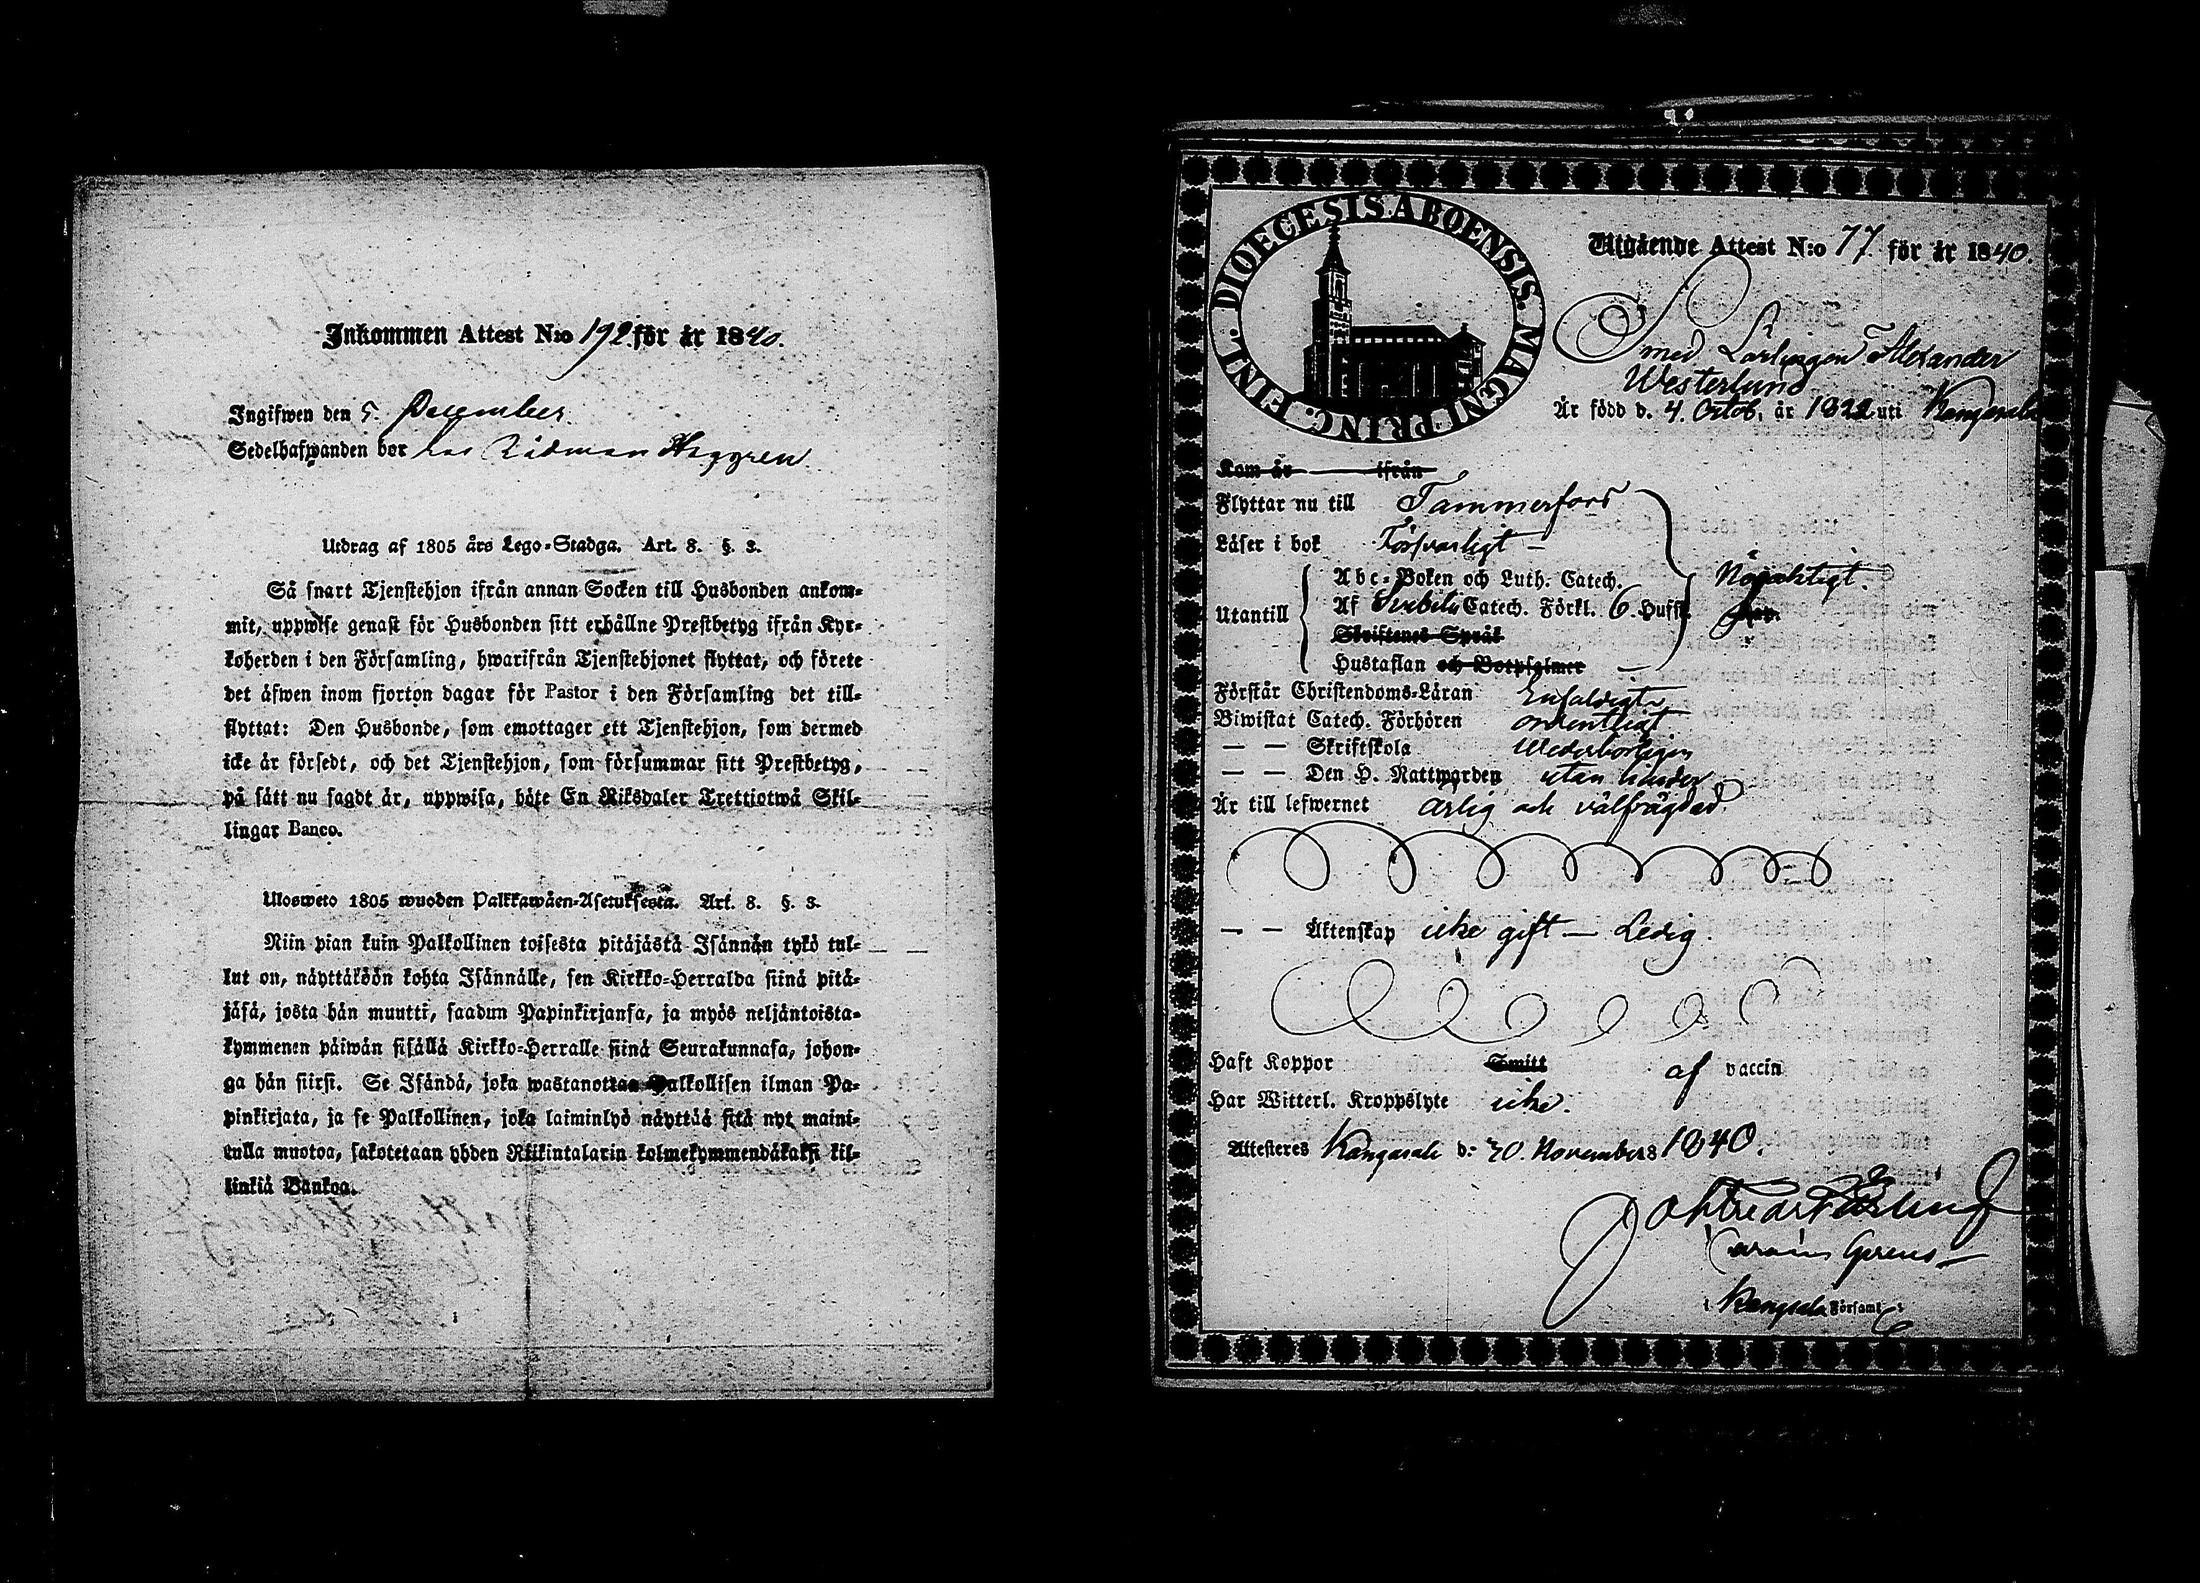 Inkommen Attest N:o 192 för år 1840.
Ingifwen den 5. December.
Sedelhafwanden bor hos Rådman Haggren
Utdrag af 1805 års Lego-Stadga. Art. 8. §. 3.
Så snart Tjenstehjon ifrån annan Socken till Husbonden ankom-
mit, uppwise genast för Husbonden sitt erhållne Prestbetyg ifrån Kyr-
koherden i den Församling, hwarifrån Tjenstehjonet flyttat, och förete
det äfwen inom fjorton dagar för Pastor i den Församling det till-
flyttat: Den Husbonde, som emottager ett Tjenstehjon, som dermed
icke är försedt, och det Tjenstehjon, som försummar sitt Prestbetyg,
på sätt nu sagdt är, uppwisa, böte En Riksdaler Trettiotwå Skil-
lingar Banco.
Ulosweto 1805 wuoden Palkkawäen-Asetuksesta. Art. 8. §. 3.
Niin pian kuin Palkollinen toisesta pitäjästä Isännän tykö tul-
lut on, näyttäköön kohta Isännälle, sen Kirkko-Herralda siinä pitä-
jäsä, josta hän muutti, saadun Papinkirjansa, ja myös neljäntoista-
kymmenen päiwän sisällä Kirkko-Herralle siinä Seurakunnasa, johon-
ga hän siirsi. Se Isändä, joka wastanottaa Palkollisen ilman Pa-
pinkirjata, ja se Palkollinen, joka laiminlyö näyttää sitä nyt maini-
tulla muotoa, sakotetaan yhden Riikintalarin kolmekymmendäkaksi kil-
linkiä Bankoa.
DIOECESIS ABOENSIS. MAGNI PRINC. FINL.
Utgående Attest N:o 77 för år 1840.
Smed Lärlingen Alexander
Westerlund
Är född d. 4. Octob. år 1822 uti Kangasala
Kom år ifrån
Flyttar nu till Tammerfors
Läser i bok Försvarligt
Utantill
Abc-Boken och Luth. Catech.
Af Svebilii Catech. Förkl. 6. Hufst.
Nöjaktigt.
Skriftenes Språk
Hustaflan och Botpsalmer
Förstår Christendoms-Läran Enfaldigt
Biwistat Catech. Förhören ordentligt
— — Skriftskola wederbörligen
— — Den H. Nattwarden utan hinder
Är till lefwernet ärlig och välfrägdad.
— — Äktenskap icke gift — Ledig.
Haft Koppor Smitt af vaccin
Har Witterl. Kroppslyte icke.
Attesteres Kangasala d: 30. November 1840.
i Kangasala Församl: